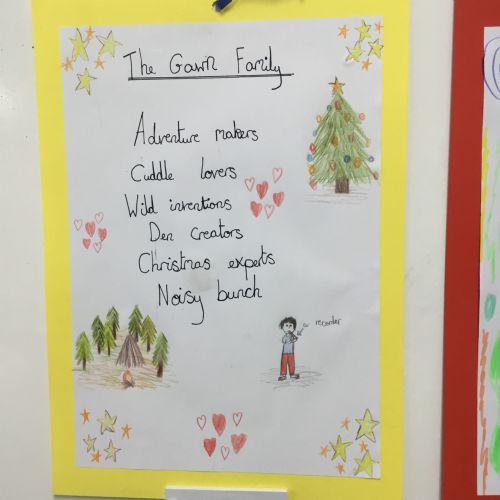 The Gawn Family
Adventure makers
Cuddle lovers
Wild inventions
Den creators
Christmas experts
Noisy bunch
recorder